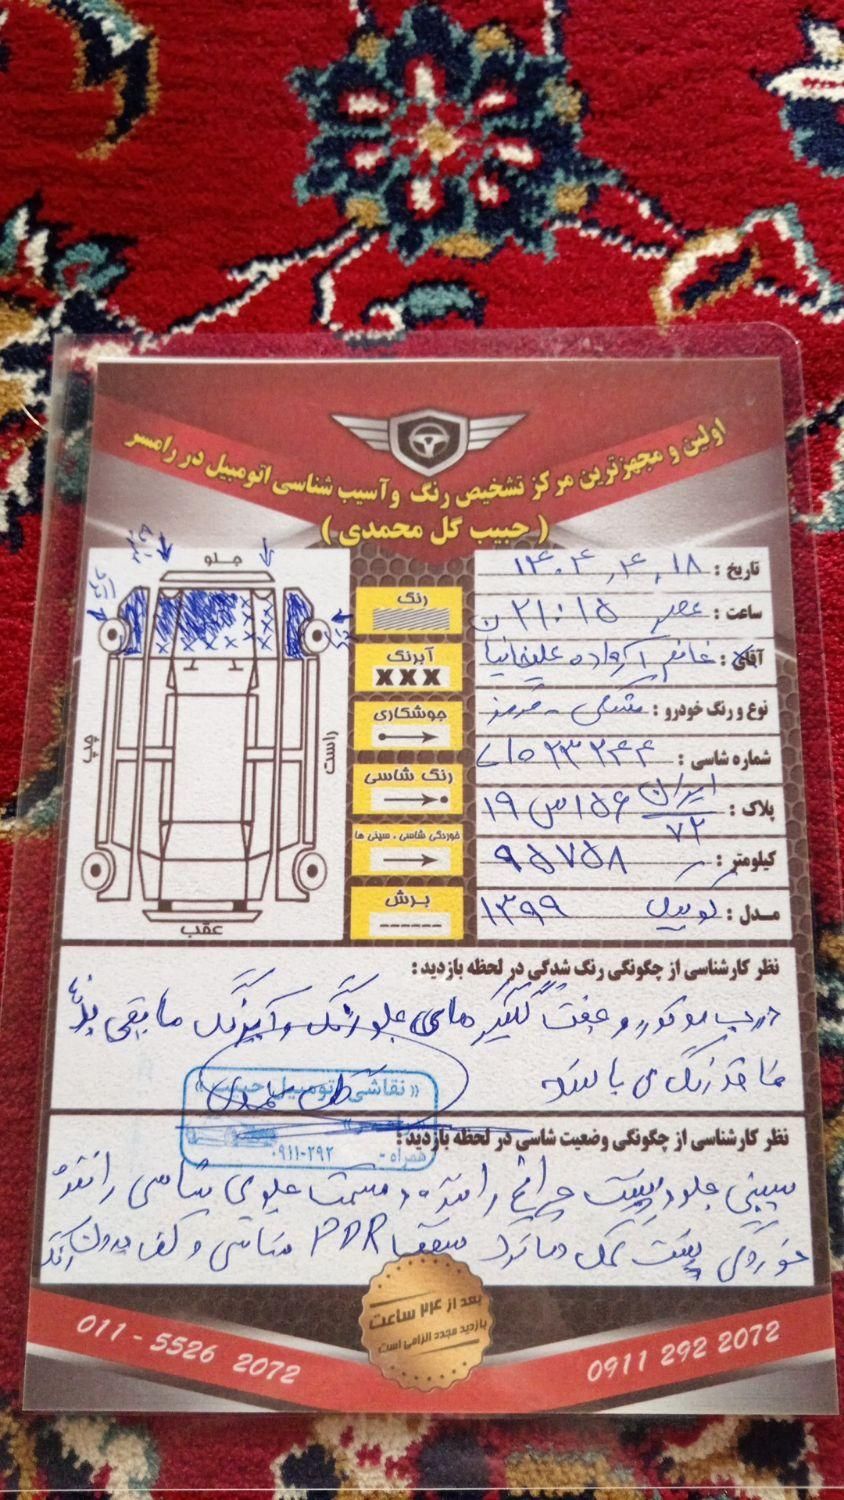 اولین و مجهزترین مرکز تشخیص رنگ وآسیب شناسی اتومبیل در رامسر
( حبیب گل محمدی )
تاریخ : ۱۴۰۴,۴,۱۸
ساعت : ۲۱:۱۵ عصر
آقای : خانم آزاده علیخانیا
نوع و رنگ خودرو : مشکی - قرمز
شماره شاسی :
پلاک : ایران ۷۲ ۱۵۶س۱۹
کیلومتر : ۹۵۷۵۸
مـدل : کوییک ۱۳۹۹
جلو
چپ
راست
عقب
رنگ
آبرنگ
XXX
جوشکاری
رنگ شاسی
خوردگی شاسی ، سینی ها
برش
نظر کارشناسی از چگونگی رنگ شدگی در لحظه بازدید :
درب موتور و جفت گلگیر های جلو رنگ و آبرنگ مابقی
فاقد رنگ می باشد
« نقاشی اتومبیل حبیب »
همراه - ۰۹۱۱-۲۹۲
نظر کارشناسی از چگونگی وضعیت شاسی در لحظه بازدید :
سینی جلو و پشت چراغ راننده و قسمت جلوی شاسی راننده
خوردگی پشت کمک دماغه سقف PDR شاسی و کف بدون رنگ
بعد از ۲۴ ساعت
بازدید مجدد الزامی است
011 - 5526 2072
0911 292 2072